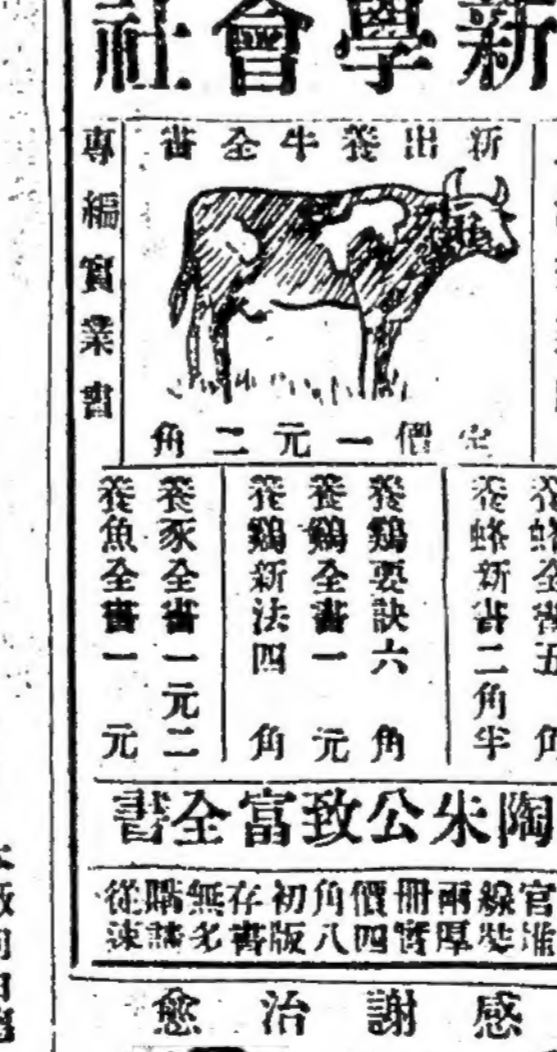 新學會社
新出養牛全書
專編實業書
定價一元二角
養蜂全書五角
養蜂新書二角半
養鷄要訣六角
養鷄全書一元
養鷄新法四角
養豕全書一元二
養魚全書一元
陶朱公致富全書
官准
線裝
兩厚
冊實
價四
角八
初版
存書
無多
購請
從速
感謝治愈